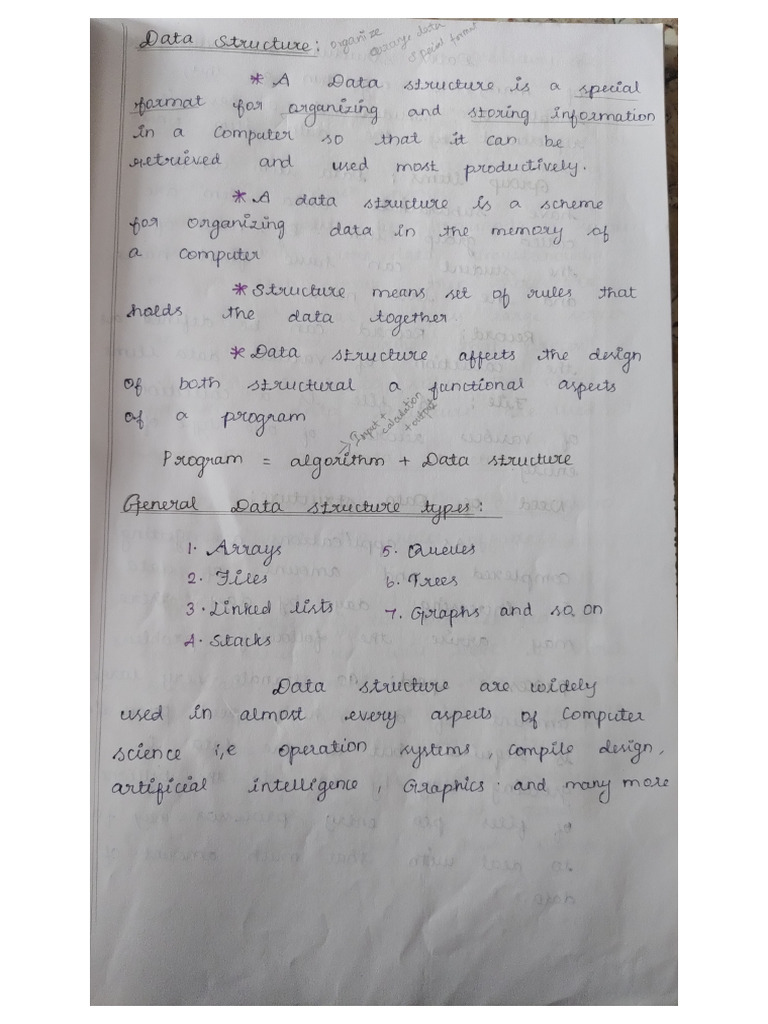 Data Structure: organize
arrange data
special format
* A Data structure is a special
format for organizing and storing information
in a computer so that it can be
retrieved and used most productively.
* A data structure is a scheme
for organizing data in the memory of
a computer
* Structure means set of rules that
holds the data together
* Data structure affects the design
of both structural a functional aspects
of a program
Input +
calculation
+ output
Program = algorithm + Data structure
General Data structure types:
1. Arrays 5. Queues
2. Files 6. Trees
3. Linked lists 7. Graphs and so on
4. Stacks
Data structure are widely
used in almost every aspects of Computer
science i,e operation systems, compile design,
artificial intelligence, Graphics. and many more